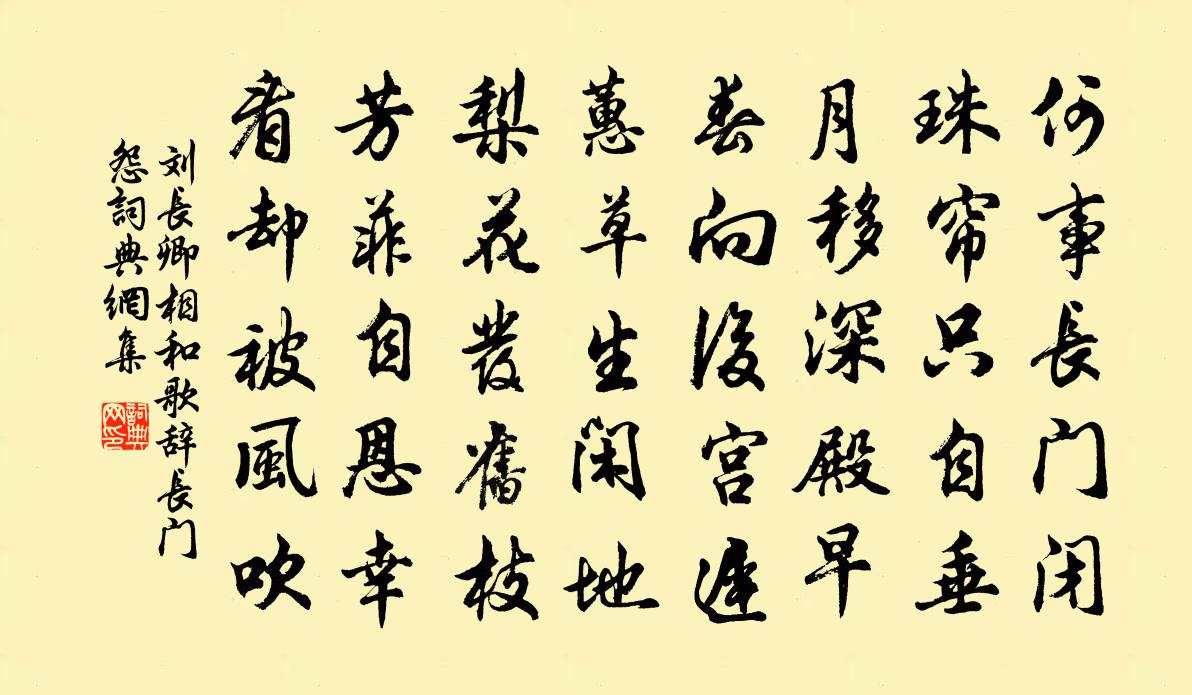 何事長门闭
珠帘只自垂
月移深殿早
春向後宫遲
蕙草生闲地
梨花發舊枝
芳菲自恩幸
看却被風吹
刘長卿相和歌辞長门
怨詞典網集
詞典
网印